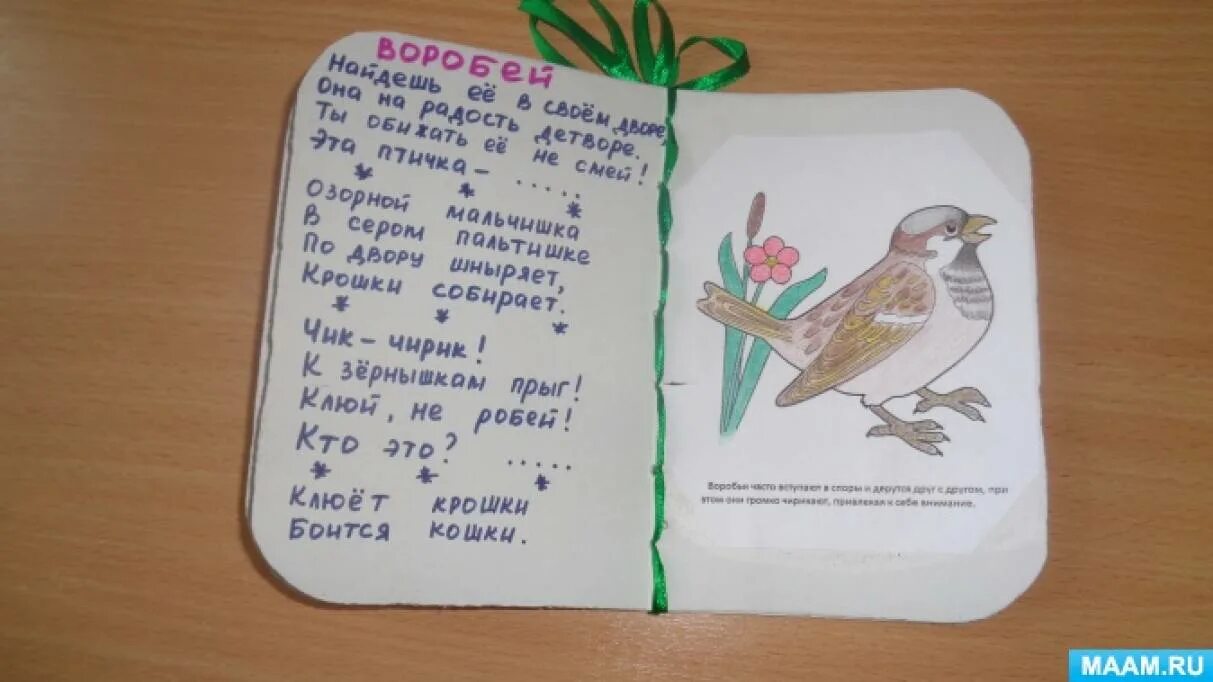 ВОРОБЕЙ
Найдешь её в своём дворе,
Она на радость детворе.
Ты обижать её не смей!
Эта птичка – .....
* * *
Озорной мальчишка
В сером пальтишке
По двору шныряет,
Крошки собирает.
* * *
Чик – чирик!
К зёрнышкам прыг!
Клюй, не робей!
Кто это? .....
* * *
Клюёт крошки
Боится кошки.
Воробьи часто вступают в споры и дерутся друг с другом, при
этом они громко чирикают, привлекая к себе внимание.
MAAM.RU